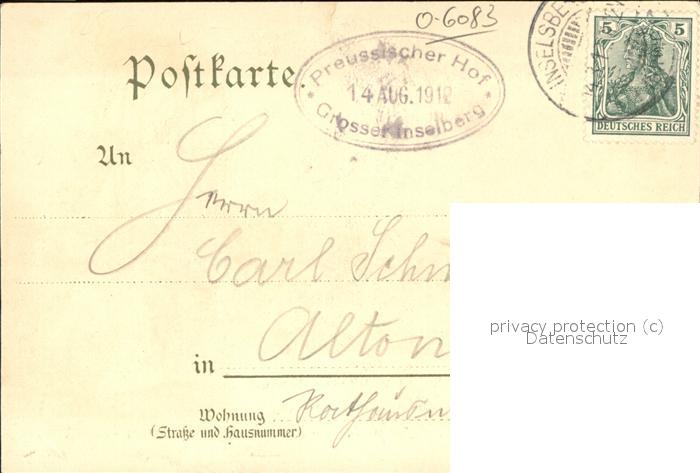 O-6083
Postkarte.
* Preussischer Hof *
14 AUG. 1912
Grosser Inselberg
INSELSBE
5 5
DEUTSCHES REICH
An
Herrn
Carl Sch
Alton
in
Wohnung
(Straße und Hausnummer)
privacy protection (c)
Datenschutz